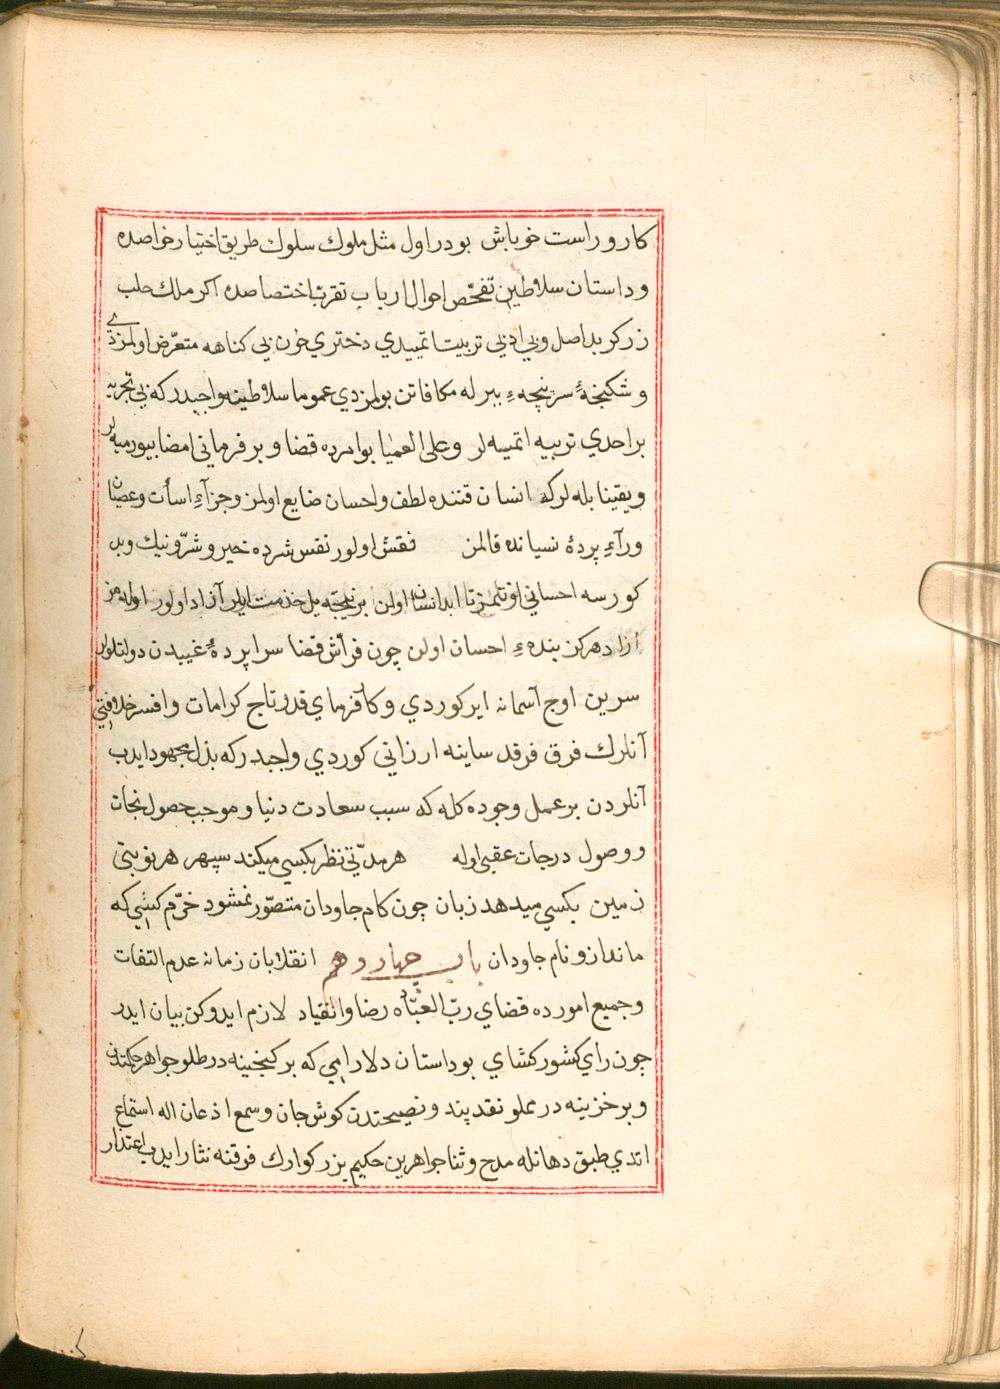 كار و راست خو باش بودر اول مثل ملوك سلوك طريق اختيار خواصده
و داستان سلاطين تفحّص احوال ارباب تقرب اختصاصده اكر ملك حلب
زركر بد اصل و بي ادبي تربيت اتمييدي دختري خون بي كناهه متعرّض اولمزدي
و شكنجۀ سرپنچهء ببرله مكافاتن بولمزدي عموما سلاطينه واجبدر كه بي تجربه
بر احدي تربيه اتميه لر و على العميا بو امرده قضا و بر فرماني امضا بيورميه لر
و يقينا بله لر كه انسان قتنده لطف و احسان ضايع اولمز و جزآء اسأت و عصيان
ورآء پردۀ نسيانده قالمز نقش اولور نفس شرده خير و شرّ و نيك و بد
كورسه احساني اونتمز تا ابد انسان اولن بر نيجه يل خذمت ايلر آزاد اولور اوله مز
ازاد هركز بندهء احسان اولن چون فرّاش قضا سراپردۀ غيبدن دولتلولر
سرين اوج آسمانه اير كوردي و كارفرماي قدر تاج كرامات و افسر خلافتي
آنلرك فرق فرقد ساينه ارزاني كوردي واجبدر كه بذل مجهود ايدب
آنلردن بر عمل وجوده كله كه سبب سعادت دنيا و موجب حصول نجات
و وصول درجات عقبى اوله هر مدّتي نظر بكسي ميكند سپهر هر نوبتي
زمين بكسي ميدهد زبان چون كام جاودان متصّور نمشود خرّم كسي كه
ماند ازو نام جاودان باب چهاردهم انقلابان زمانه عدم التفات
و جميع امورده قضاي ربّ العبّاده رضا و انقياد لازم ايدوكن بيان ايدر
چون راي كشور كشاي بو داستان دلارامي كه بر كنجينه در طلو جواهر حكمتدن
و بر خزينه در مملو نقد پند و نصيحتدن كوش جان و سمع اذعان اله استماع
اتدي طبق دهانله مدح و ثنا جواهرين حكيم بزركوارك فرقنه نثار ايدب اعتذار